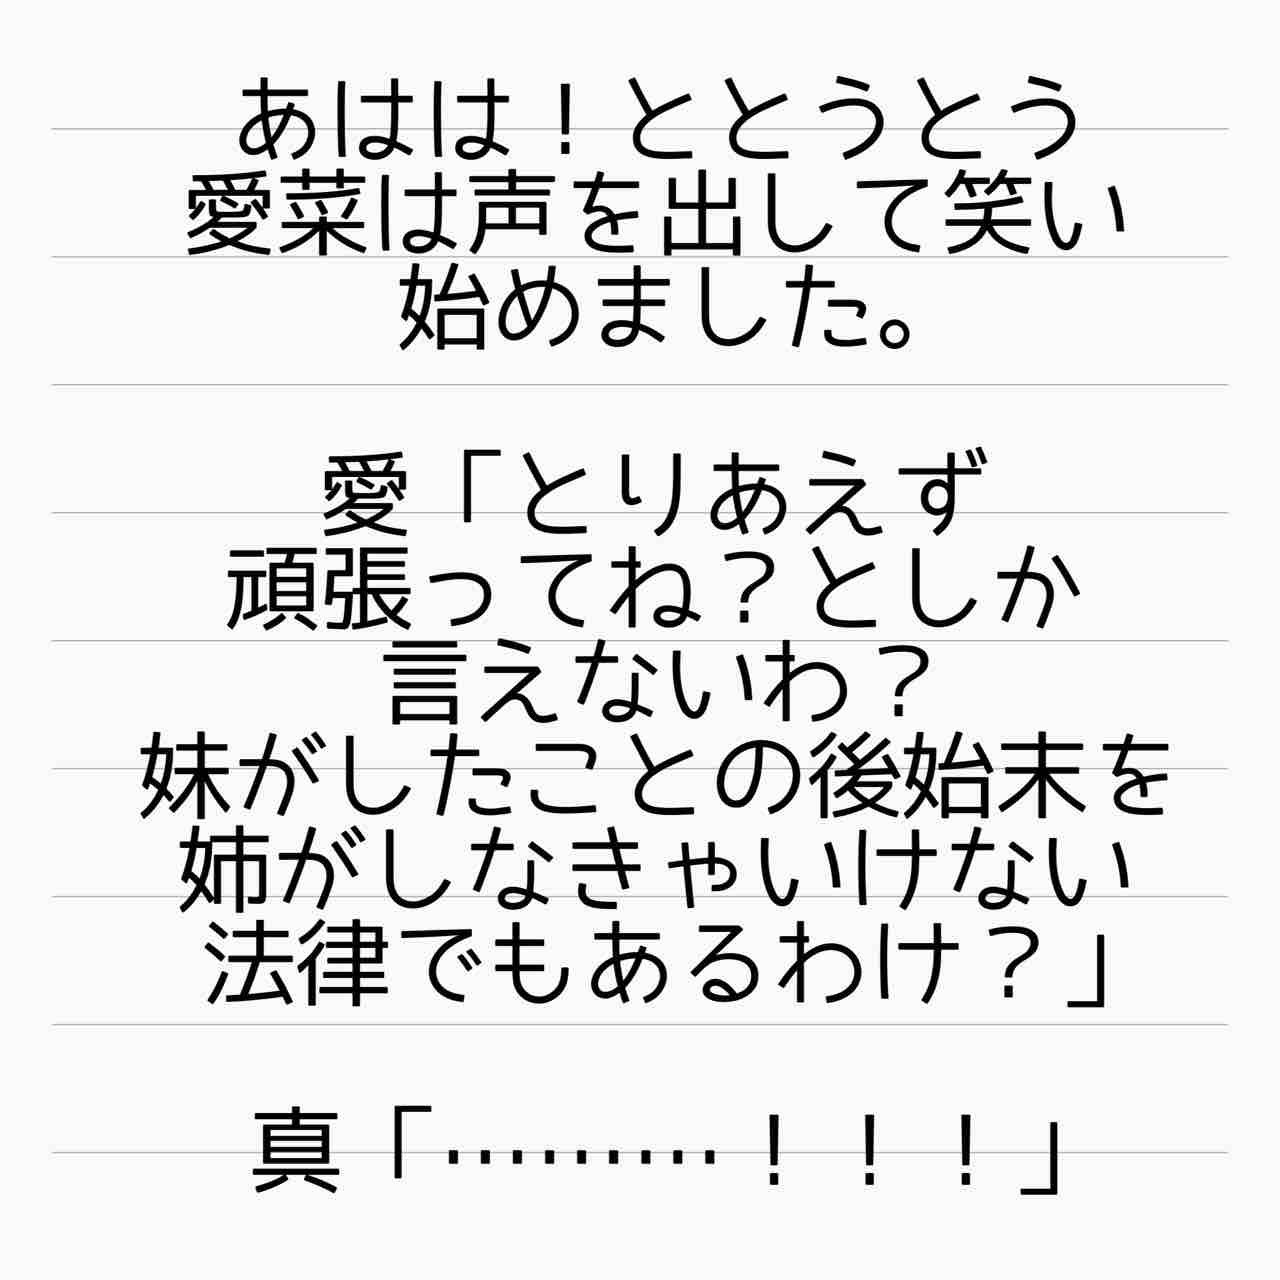 あはは！ととうとう
愛菜は声を出して笑い
始めました。
愛「とりあえず
頑張ってね？としか
言えないわ？
妹がしたことの後始末を
姉がしなきゃいけない
法律でもあるわけ？」
真「………！！！」